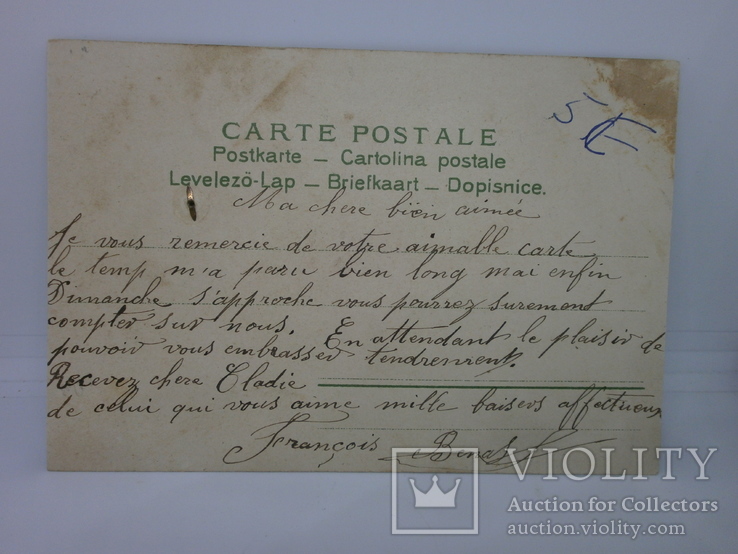 5 €
CARTE POSTALE
Postkarte — Cartolina postale
Levelező-Lap — Briefkaart — Dopisnice.
Ma chere bien aimée
Je vous remercie de votre aimalle carte
le temp m'a paru bien long mai enfin
Dimanche s'approche vous pourrez surement
compter sur nous. En attendant le plaisir de
pouvoir vous embrasser tendrement.
Recevez chere Cladie
de celui qui vous aime mille baisers affectueux
François
VIOLITY
Auction for Collectors
auction.violity.com